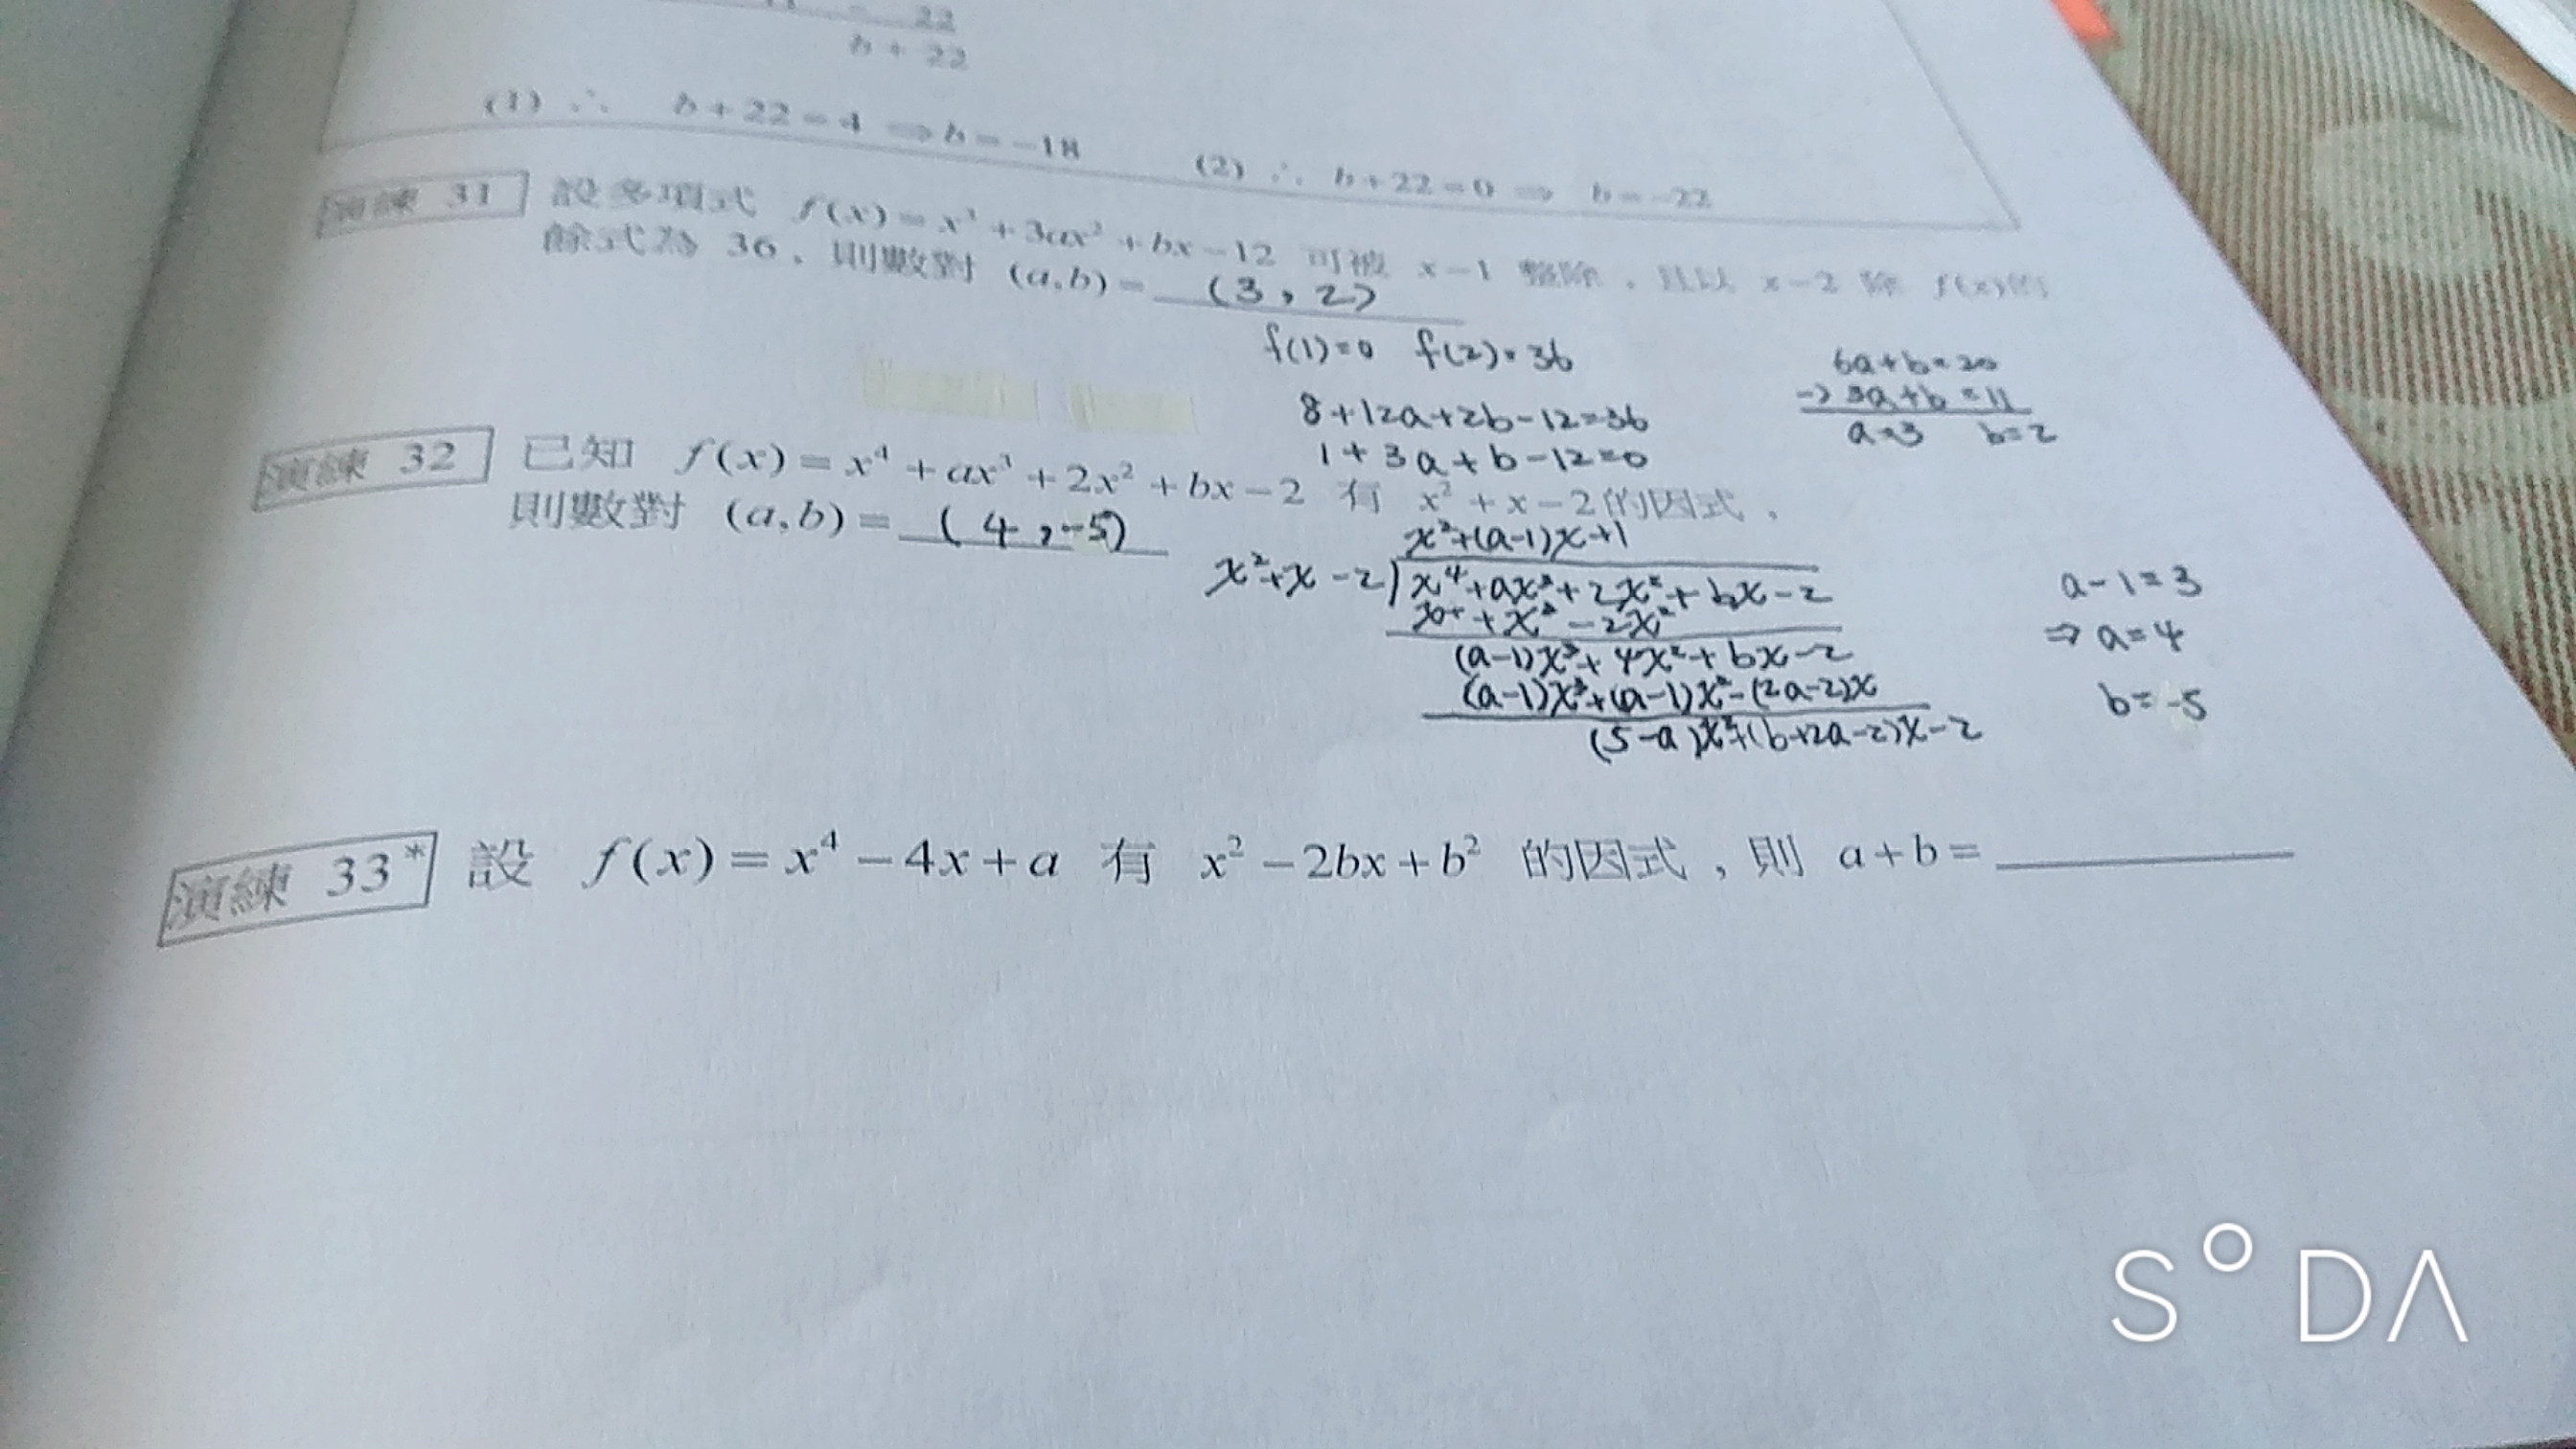 22
b + 22
(1) ∴ b + 22 = 4 ⇒ b = −18 (2) ∴ b + 22 = 0 ⇒ b = −22
演練 31 設多項式 f(x) = x³ + 3ax² + bx − 12 可被 x − 1 整除,且以 x − 2 除 f(x)的
餘式為 36,則數對 (a,b) = (3,2)
f(1)=0 f(2)=36
8+12a+2b-12=36
1+3a+b-12=0
6a+b=20
-) 3a+b=11
a=3 b=2
演練 32 已知 f(x) = x⁴ + ax³ + 2x² + bx − 2 有 x² + x − 2 的因式,
則數對 (a,b) = (4,-5)
x²+(a-1)x+1
x²+x-2)x⁴+ax³+2x²+bx-2
x⁴+x³-2x²
(a-1)x³+4x²+bx-2
(a-1)x³+(a-1)x²-(2a-2)x
(5-a)x²+(b+2a-2)x-2
a-1=3
⇒ a=4
b=-5
演練 33* 設 f(x) = x⁴ − 4x + a 有 x² − 2bx + b² 的因式,則 a + b =
SODA